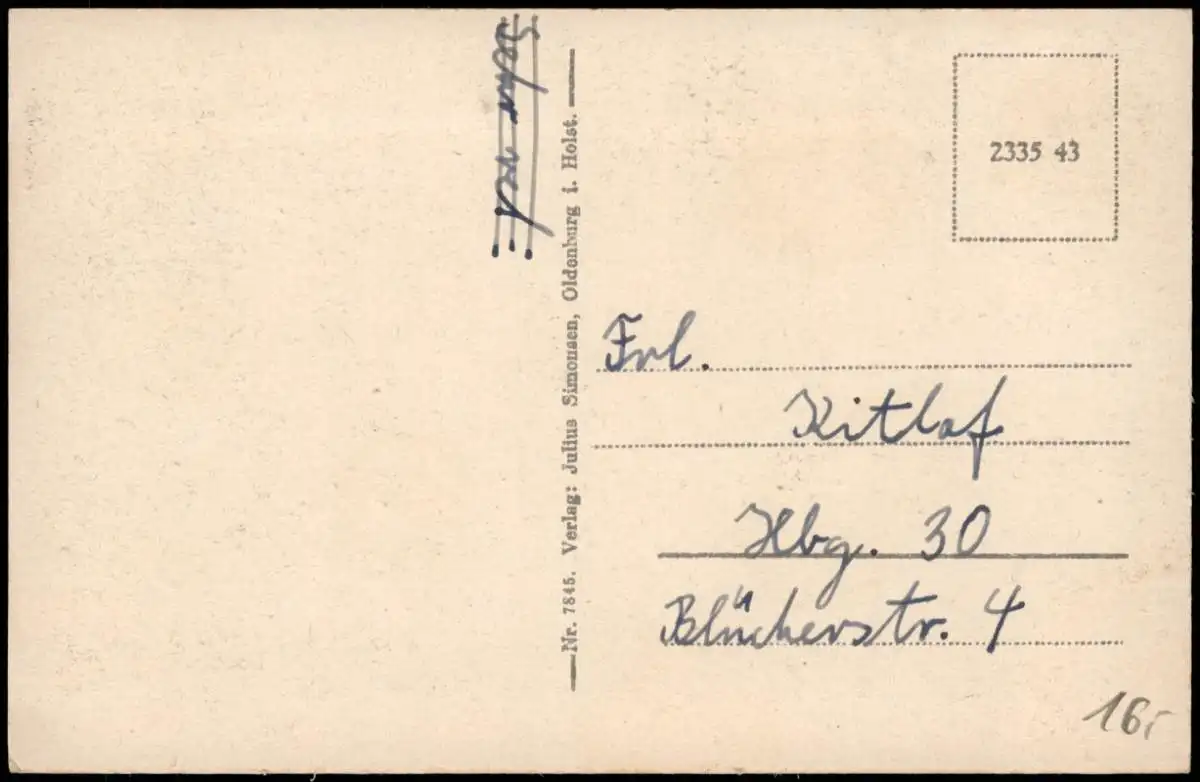 Nr. 7845. Verlag: Julius Simonsen, Oldenburg i. Holst.
2335 43
Frl.
Kitlaf
Hbg. 30
Blücherstr. 4
16,-